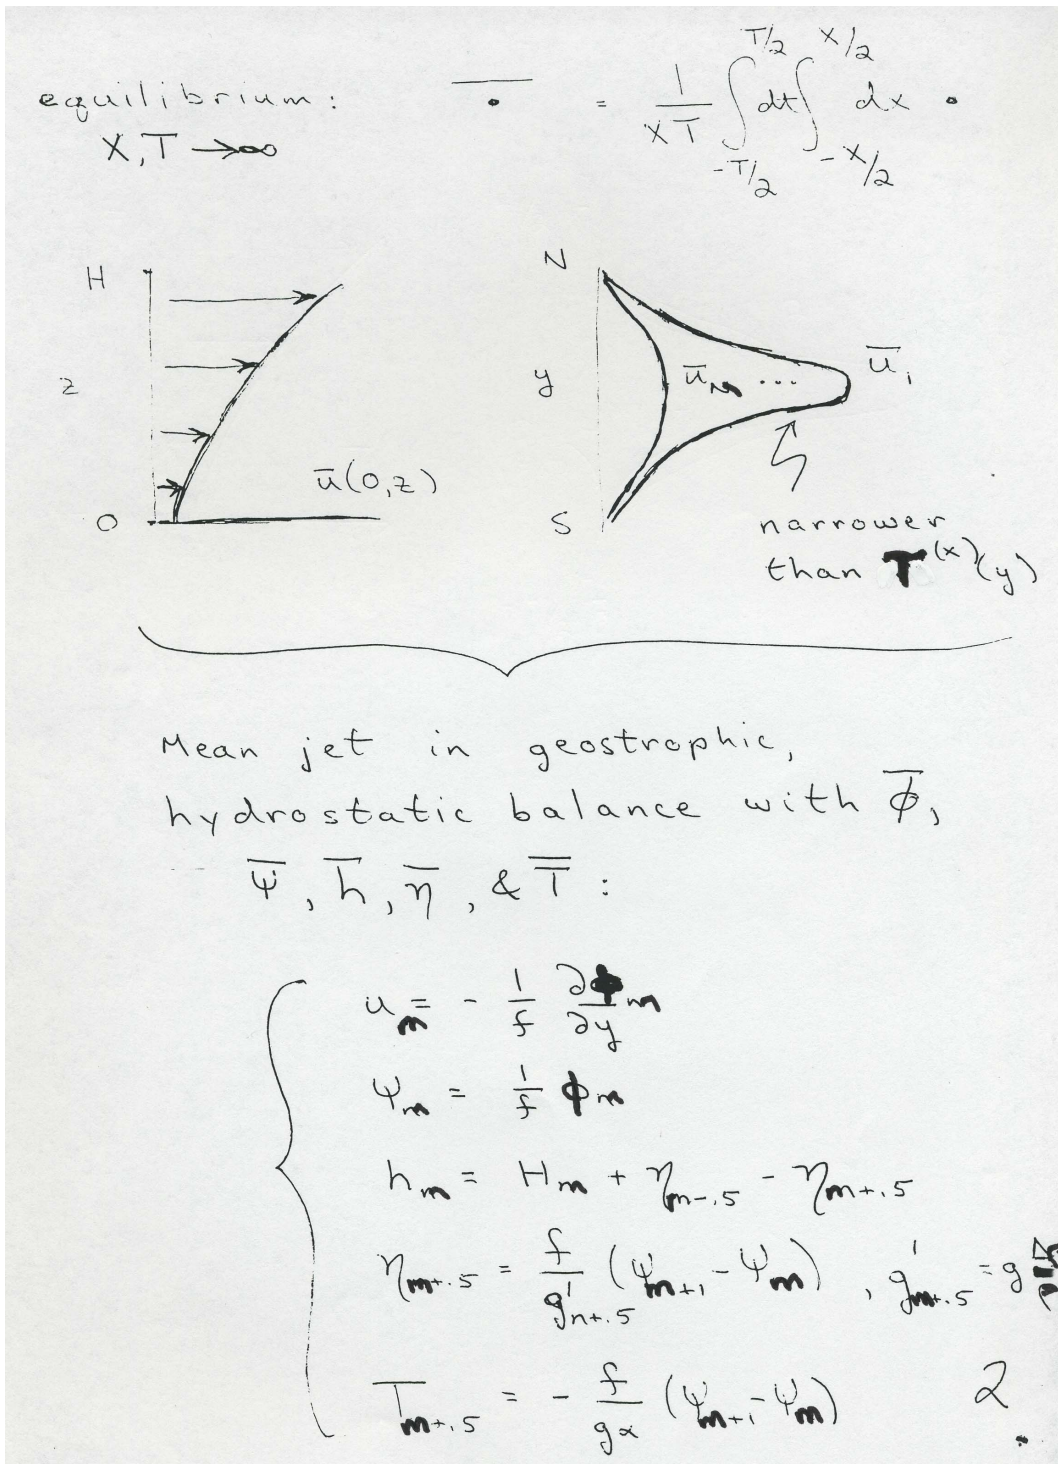 equilibrium: X,T → ∞
‾•‾ = 1/XT ∫_{-T/2}^{T/2} dt ∫_{-X/2}^{X/2} dx •
H
z
O
ū(0,z)
N
y
S
ū_N ...
ū_1
narrower
than τ^(x)(y)
Mean jet in geostrophic,
hydrostatic balance with ϕ̄,
ψ̄, h̄, η̄, & T̿ :
u_m = - 1/f ∂ϕ_m/∂y
ψ_m = 1/f ϕ_m
h_m = H_m + η_{m-.5} - η_{m+.5}
η_{m+.5} = f/g'_{n+.5} (ψ_{m+1} - ψ_m), g'_{m+.5} = g
T_{m+.5} = - f/gα (ψ_{m+1} - ψ_m)
2.